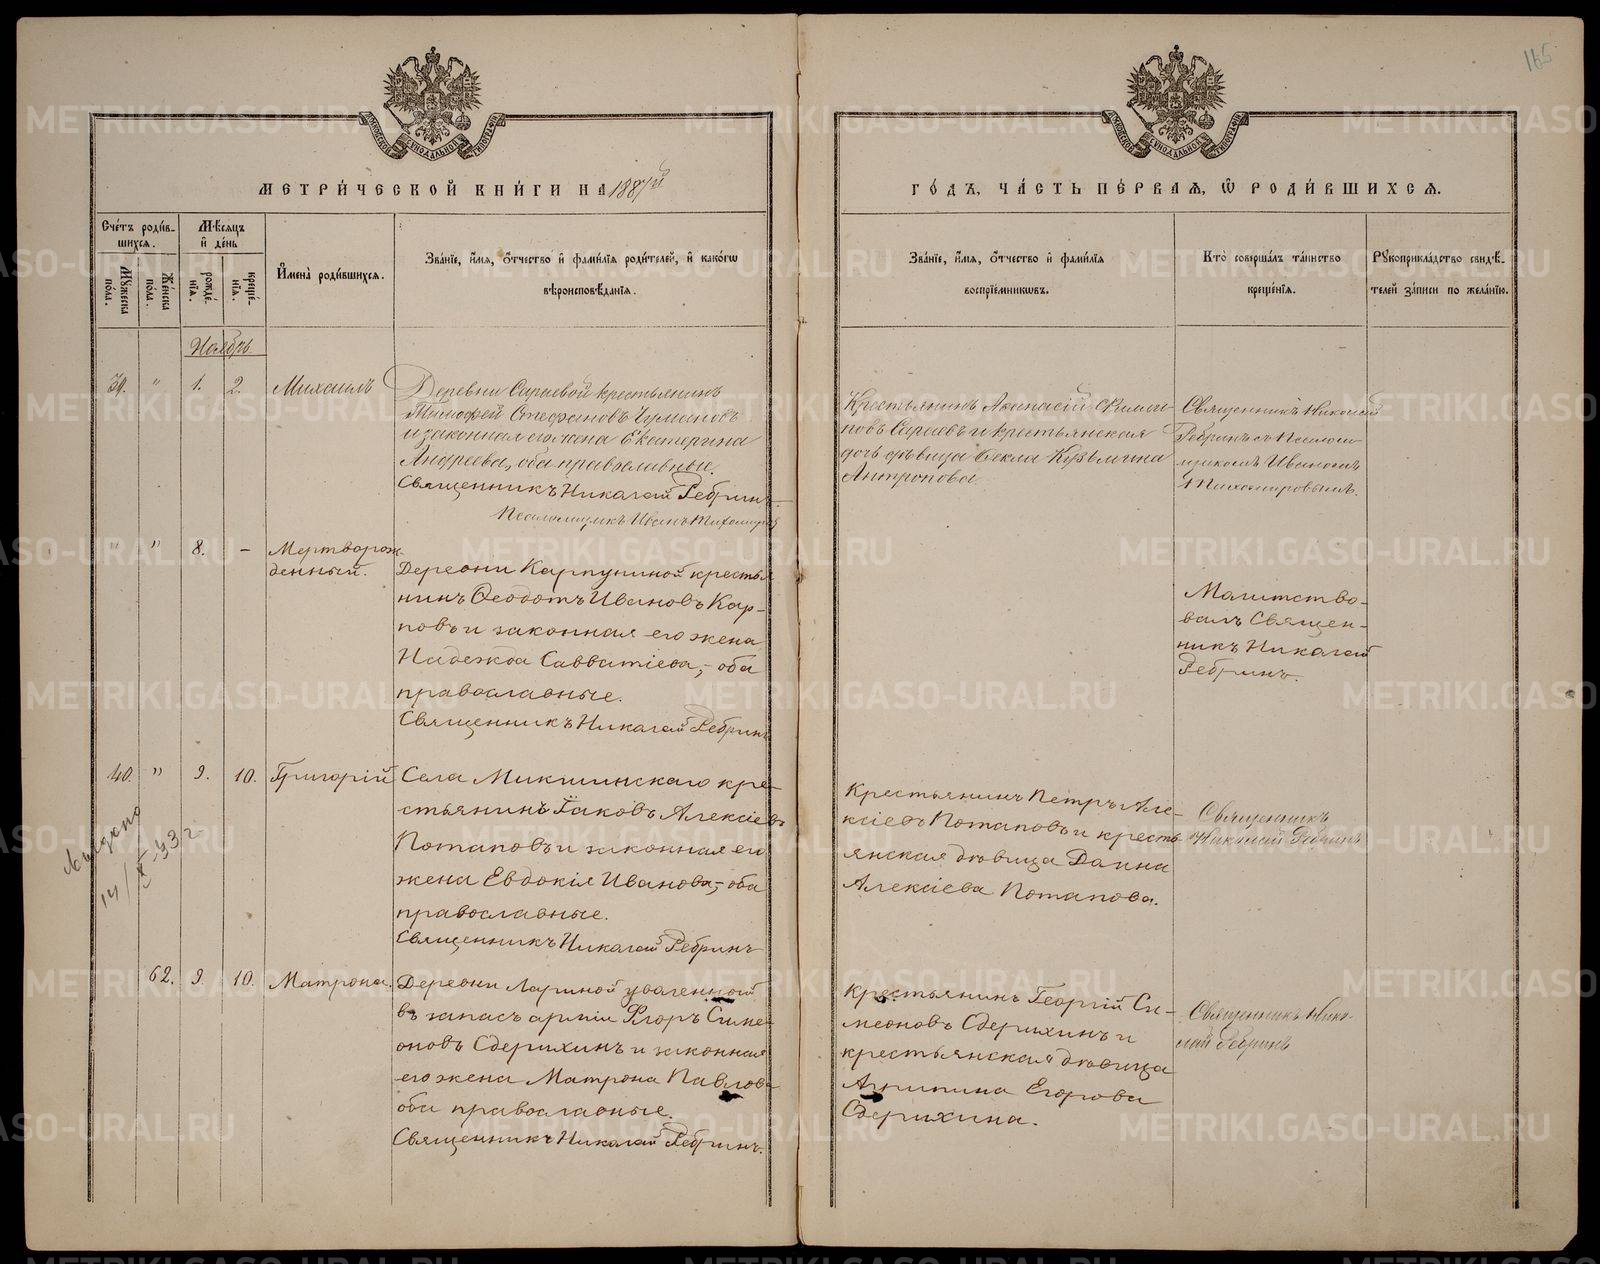 165
МЕТРИ́ЧЕСКОЙ КНИ́ГИ НА 1887й
ГО́ДЪ, ЧА́СТЬ ПЕ́РВАѦ, Ѡ РОДИ́ВШИХСѦ.
Сче́тъ роди́в-
шихсѧ.
Мꙋжеска по́ла.
Же́нска по́ла.
Мѣ́сѧцъ и҆ де́нь
рожде́-нїѧ.
креще́-нїѧ.
И҆мена̀ роди́вшихсѧ.
Зва́нїе, и҆́мѧ, ѻ҆́тчество и҆ фами́лїѧ роди́телей, и҆ како́гѡ
вѣроисповѣ́данїѧ.
Зва́нїе, и҆́мѧ, ѻ҆́тчество и҆ фами́лїѧ
воспрїе́мникѡвъ.
Кто̀ соверша́лъ та́инство
креще́нїѧ.
Рꙋкоприкла́дство свидѣ́-
телей за́писи по жела́нїю.
Ноябрь
39. " 1. 2. Михаилъ
Деревни Сараевой крестьянинъ
Тимофей Стефановъ
и законная его жена Екатерина
Андреева, оба православные.
Священникъ Николай Ребринъ
Псаломщикъ Иванъ Тихомировъ
Крестьянинъ Афанасій Филип-
повъ Сараевъ и крестьянская
дочь дѣвица Фекла Кузьмина
Антропова
Священникъ Николай
Ребринъ съ Псалом-
щикомъ Иваномъ
Тихомировымъ.
" " 8. - Мертворож
денный.
Деревни Карпуниной крестья
нинъ Ѳеодотъ Ивановъ Кар-
повъ и законная его жена
Надежда Савватіева, - оба
православные.
Священникъ Николай Ребринъ
Молитство-
валъ Священ-
никъ Николай
Ребринъ.
40. " 9. 10. Григорій
Села Микшинскаго кре-
стьянинъ Іаковъ Алексіевъ
Потаповъ и законная его
жена Евдокія Иванова, - оба
православные.
Священникъ Николай Ребринъ
Крестьянинъ Петръ Але-
ксіевъ Потаповъ и кресть
янская дѣвица Даина
Алексіева Потапова.
Священникъ
Николай Ребринъ
62. 9. 10. Матрона.
Деревни Лариной уволенной
въ запасъ арміи Флоръ Симе-
оновъ Сдерихинъ и законная
его жена Матрона Павлова
оба православные.
Священникъ Николай Ребринъ.
Крестьянинъ Георгій Си-
меоновъ Сдерихинъ и
крестьянская дѣвица
Агрипина Егорова
Сдерихина.
Священникъ Нико-
лай Ребринъ